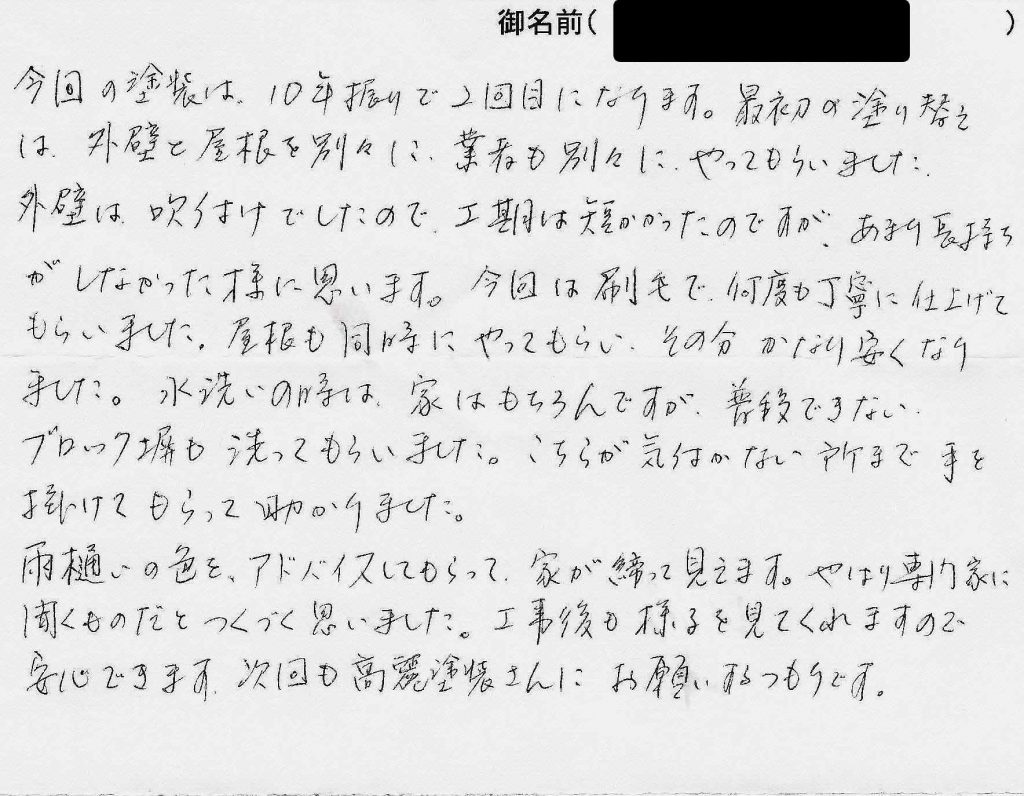 御名前( )
今回の塗装は、10年振りで2回目になります。最初の塗り替え
は、外壁と屋根を別々に、業者も別々に、やってもらいました。
外壁は、吹付けでしたので、工期は短かかったのですが、あまり長持ち
がしなかった様に思います。今回は刷毛で、何度も丁寧に仕上げて
もらいました。屋根も同時にやってもらい、その分かなり安くなり
ました。水洗いの時は、家はもちろんですが、普段できない、
ブロック塀も洗ってもらいました。こちらが気付かない所まで手を
掛けてもらって助かりました。
雨樋いの色を、アドバイスしてもらって、家が締って見えます。やはり専門家に
聞くものだとつくづく思いました。工事後も様子を見てくれますので
安心できます。次回も高麗塗装さんにお願いするつもりです。